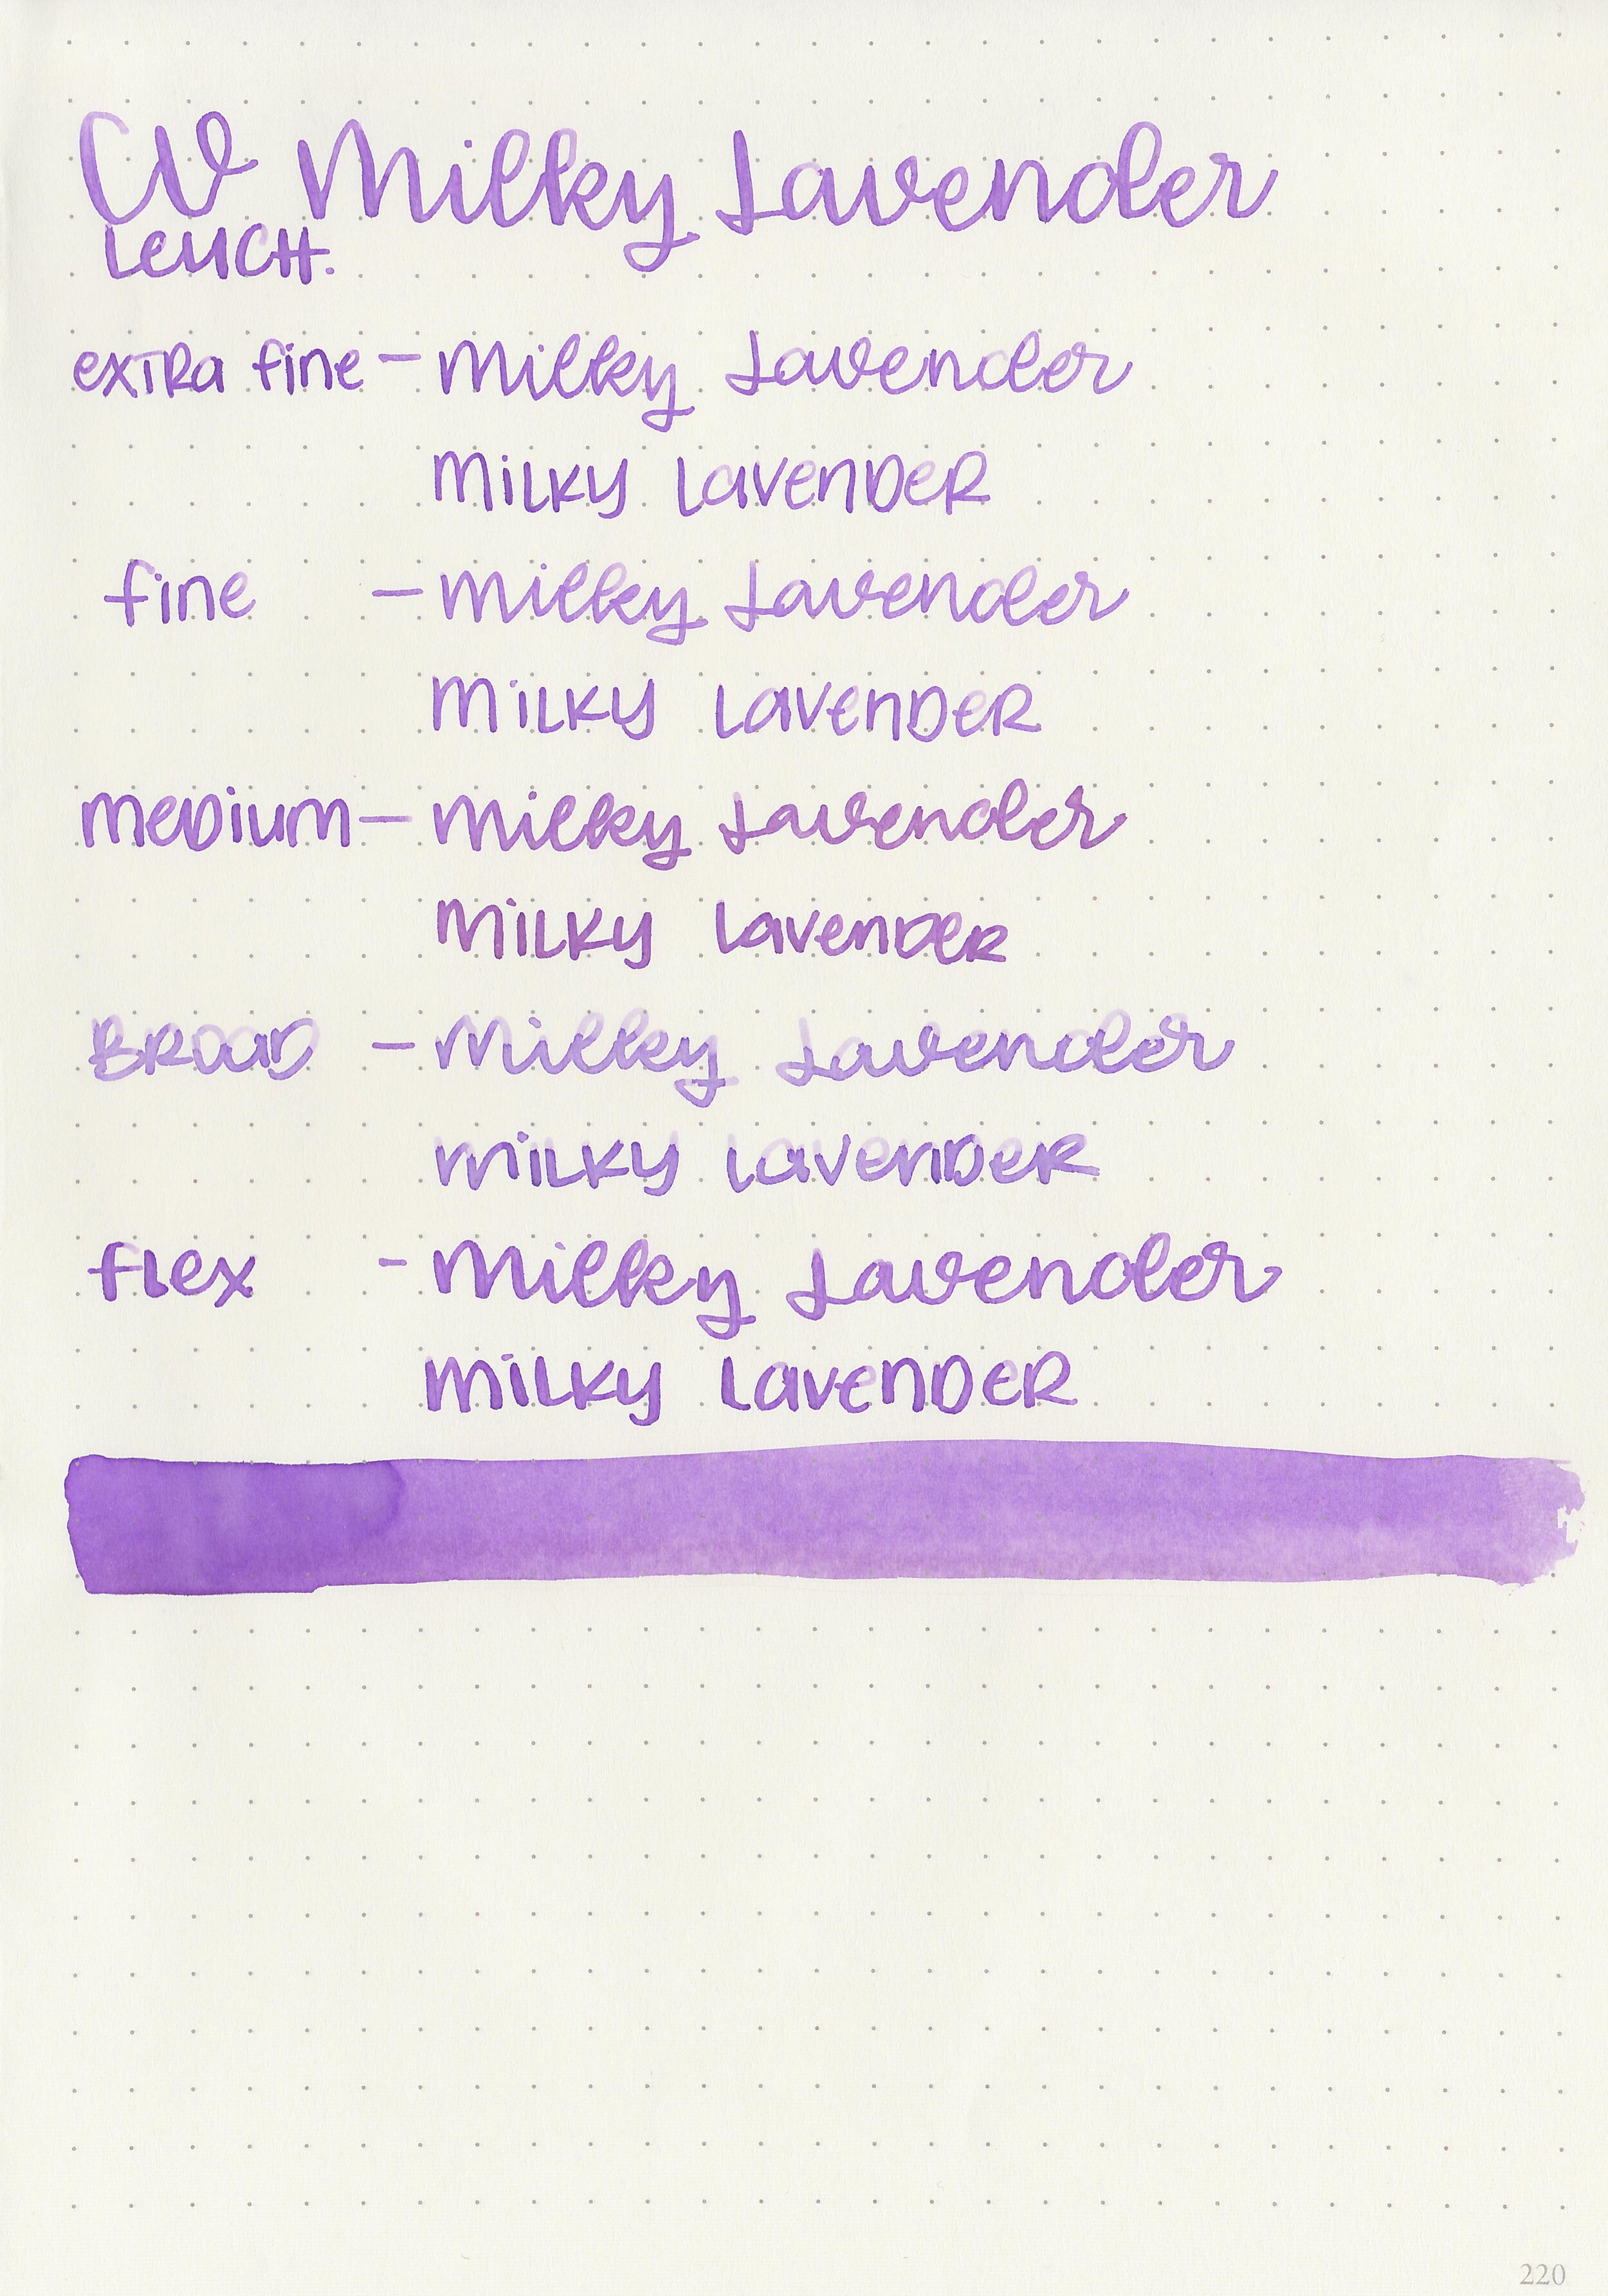 CV Milky Lavender
Leuch.
extra fine - Milky Lavender
Milky Lavender
fine - Milky Lavender
Milky Lavender
medium - Milky Lavender
Milky Lavender
Broad - Milky Lavender
Milky Lavender
flex - Milky Lavender
Milky Lavender
220